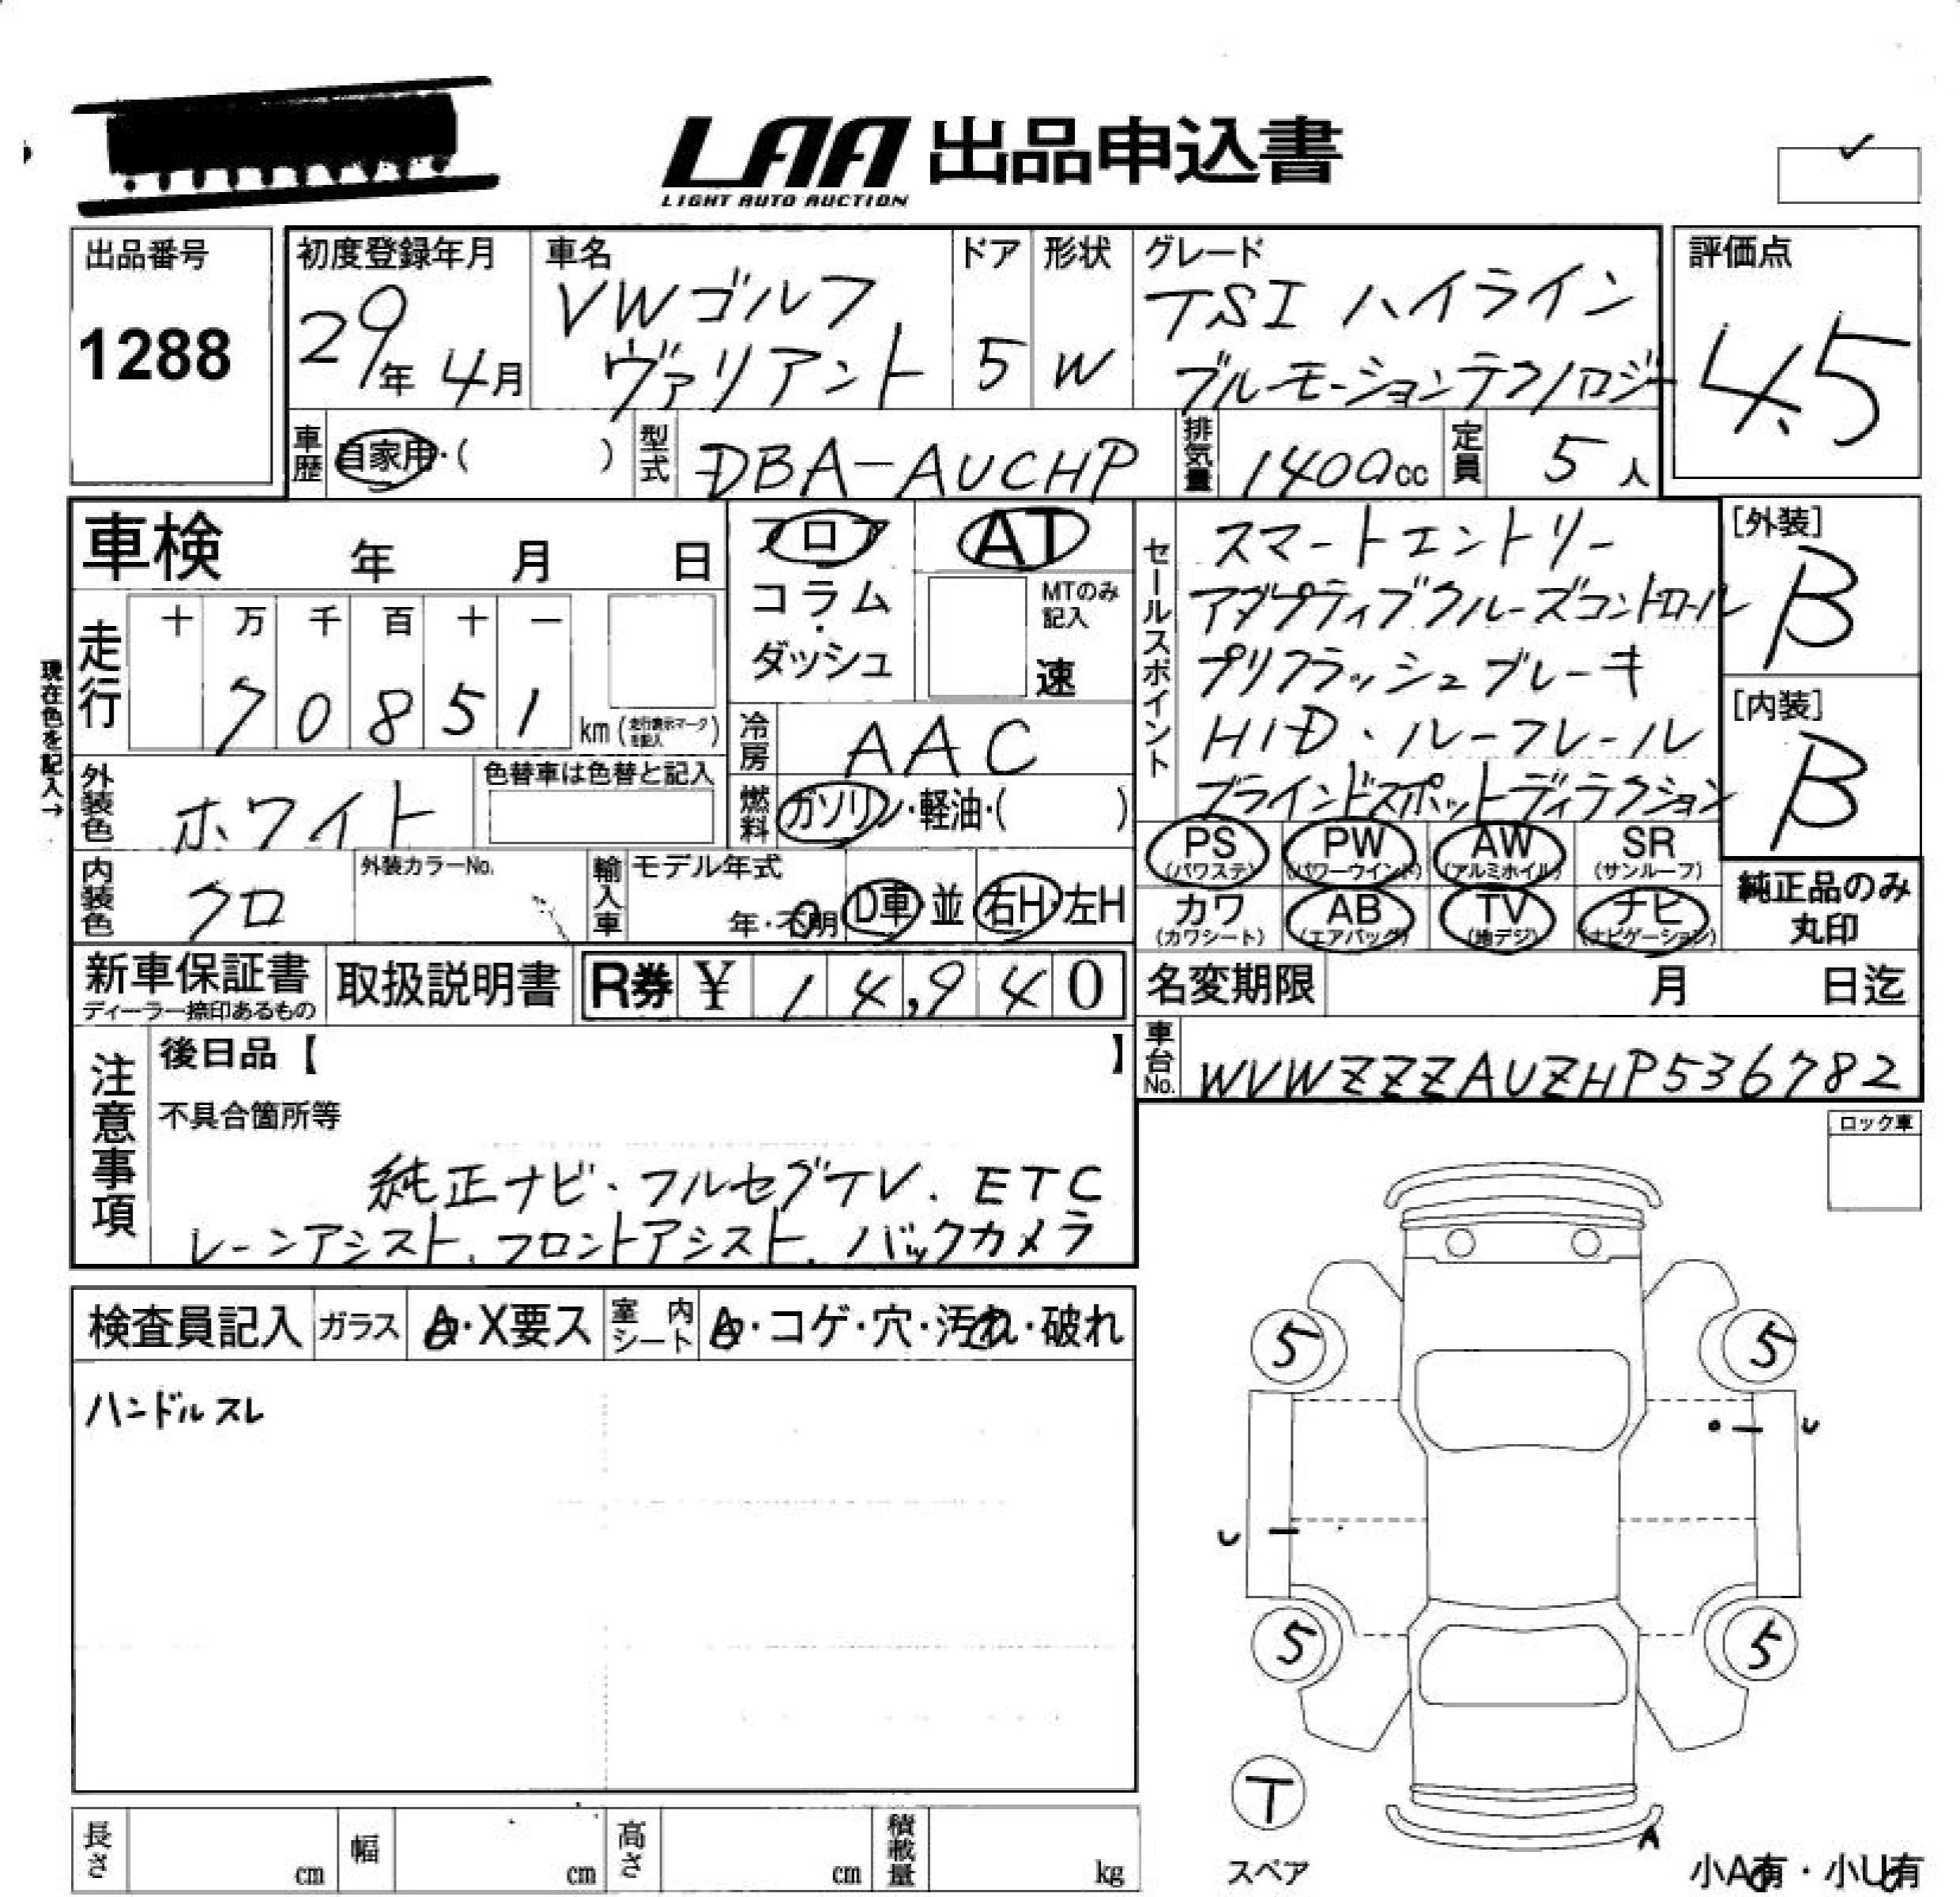 LAA 出品申込書
LIGHT AUTO AUCTION
出品番号
1288
初度登録年月
29年 4月
車名
VWゴルフ
ヴァリアント
ドア
5
形状
W
グレード
TSI ハイライン
ブルーモーションテクノロジー
評価点
4.5
車歴 自家用・( )
型式 DBA-AUCHP
排気量 1400cc
定員 5人
車検 年 月 日
フロア
コラム
・
ダッシュ
AT
MTのみ
記入
速
セールスポイント
スマートエントリー
アダプティブクルーズコントロール
プリクラッシュブレーキ
HID・ルーフレール
ブラインドスポットディテクション
[外装]
B
[内装]
B
現在色を記入→
走行
十 万 千 百 十 一
7 0 8 5 1 km(走行表示マークを記入)
冷房 AAC
外装色 ホワイト
色替車は色替と記入
燃料 ガソリン・軽油・( )
内装色 クロ
外装カラーNo.
輸入車
モデル年式
年・不明 D車 並 右H・左H
PS (パワステ)
PW (パワーウインド)
AW (アルミホイル)
SR (サンルーフ)
カワ (カワシート)
AB (エアバッグ)
TV (地デジ)
ナビ (ナビゲーション)
純正品のみ
丸印
新車保証書
ディーラー捺印あるもの
取扱説明書
R券 ¥ 14,940
名変期限 月 日迄
車台No. WVWZZZAUZHP536782
注意事項
後日品【 】
不具合箇所等
純正ナビ・フルセグTV. ETC
レーンアシスト. フロントアシスト. バックカメラ
ロック車
検査員記入 ガラス A・X要ス 室内シート A・コゲ・穴・汚れ・破れ
ハンドルスレ
5 5
U
U
5 5
T
スペア
A
小A有・小U有
長さ cm 幅 cm 高さ cm 積載量 kg